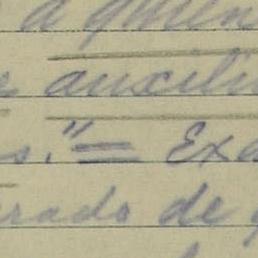 a quien
auxili
s." = Exa
rado de